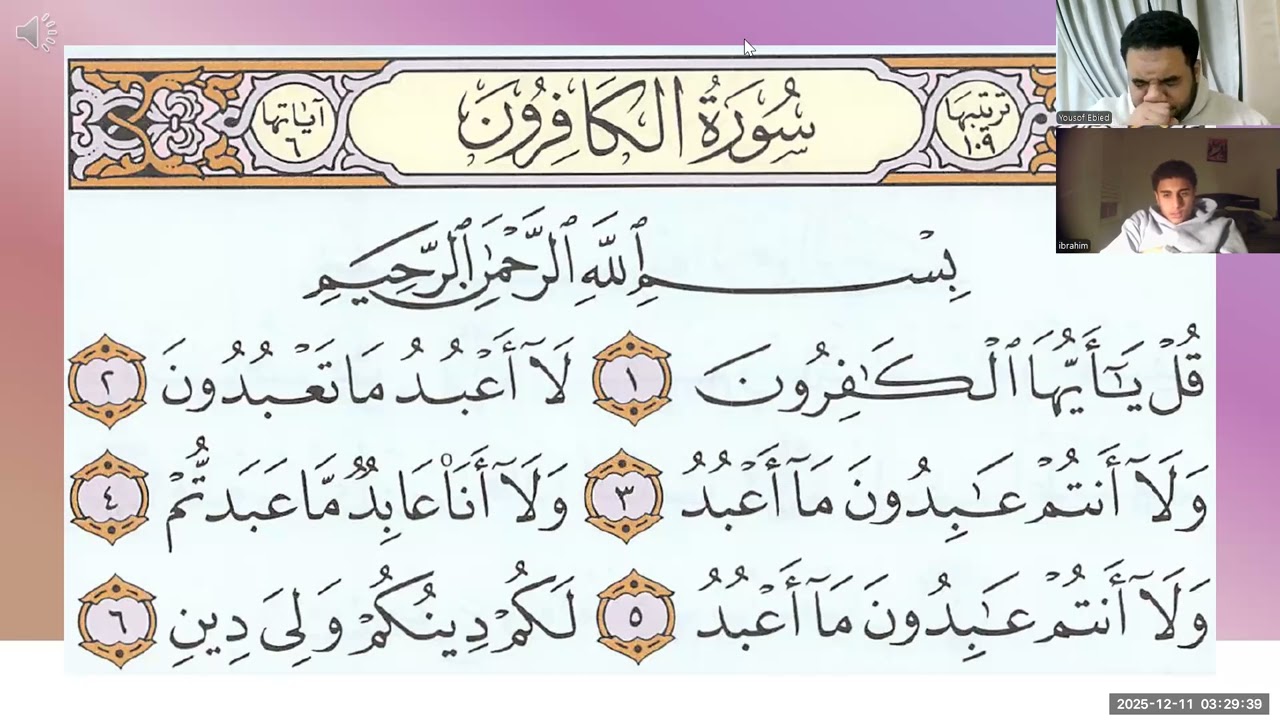 ترتيبها ١٠٩
سُورَةُ الكَافِرُونَ
آياتها ٦
Yousof Ebied
ibrahim
بِسْمِ ٱللَّهِ ٱلرَّحْمَٰنِ ٱلرَّحِيمِ
قُلْ يَٰٓأَيُّهَا ٱلْكَٰفِرُونَ ١ لَآ أَعْبُدُ مَا تَعْبُدُونَ ٢
وَلَآ أَنتُمْ عَٰبِدُونَ مَآ أَعْبُدُ ٣ وَلَآ أَنَا۠ عَابِدٌ مَّا عَبَدتُّمْ ٤
وَلَآ أَنتُمْ عَٰبِدُونَ مَآ أَعْبُدُ ٥ لَكُمْ دِينُكُمْ وَلِىَ دِينِ ٦
2025-12-11 03:29:39